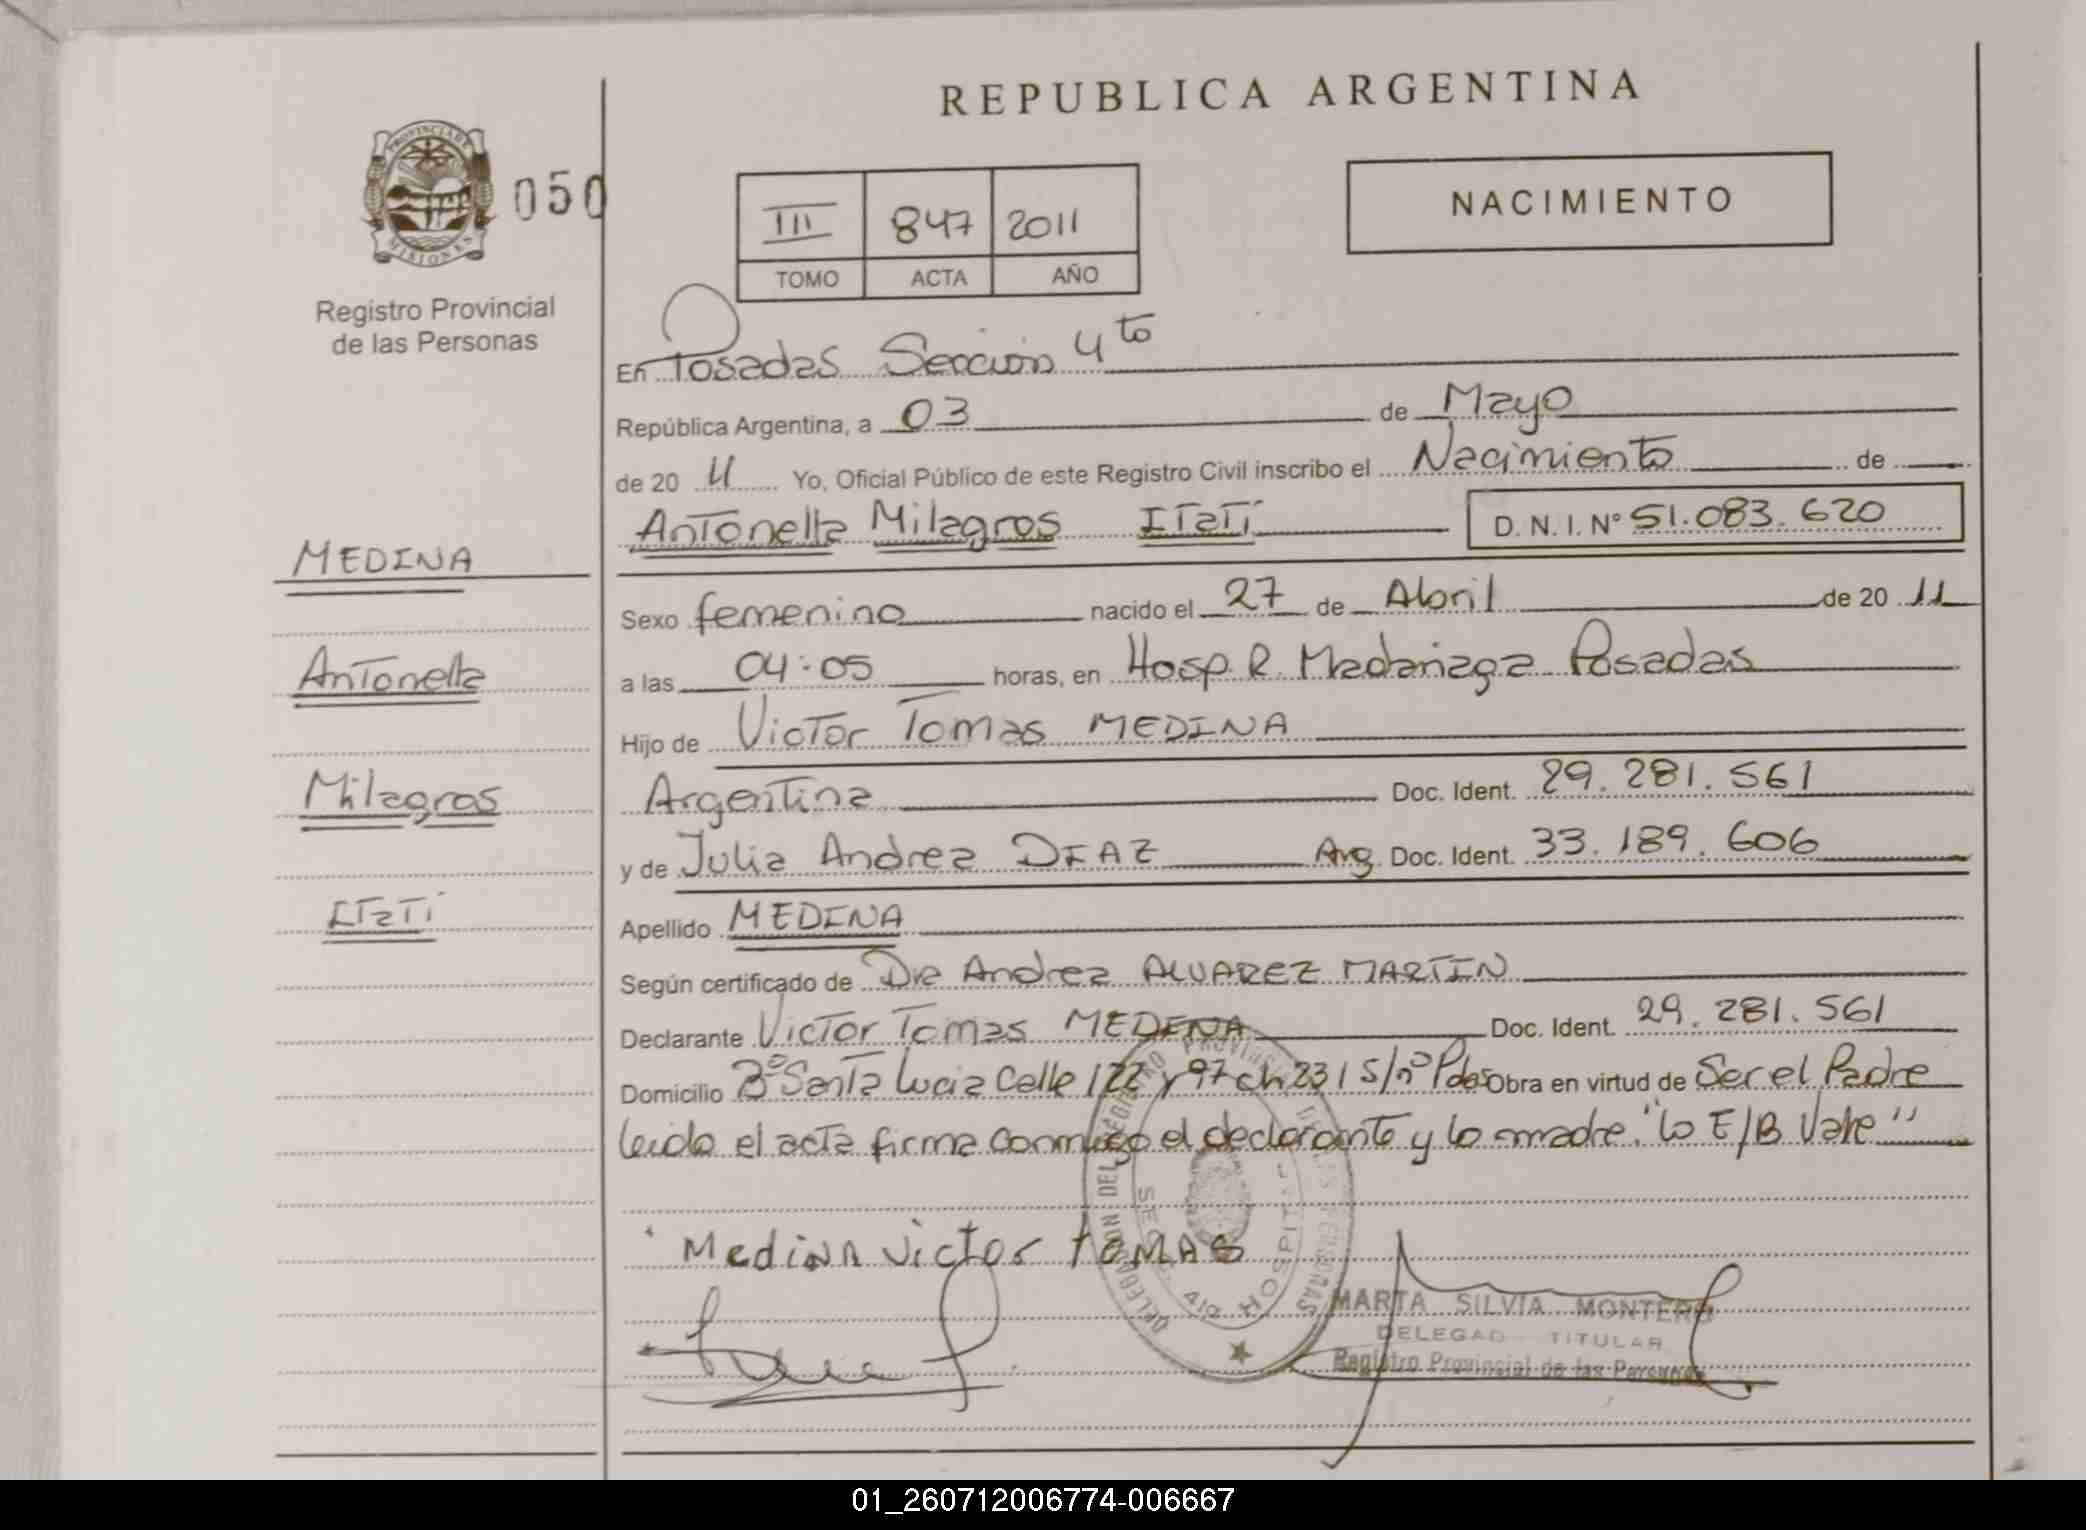 REPUBLICA ARGENTINA
PROVINCIA DE MISIONES
050
III 847 2011
TOMO ACTA AÑO
NACIMIENTO
Registro Provincial
de las Personas
En Posadas Sección 4to
República Argentina, a 03 de Mayo
de 20 11 Yo, Oficial Público de este Registro Civil inscribo el Nacimiento de
Antonella Milagros Itatí D.N.I. Nº 51.083.620
MEDINA
Sexo femenino nacido el 27 de Abril de 20 11
Antonella
a las 04:05 horas, en Hosp. R. Madariaga Posadas
Hijo de Victor Tomas MEDINA
Milagros
Argentina Doc. Ident. 29.281.561
y de Julia Andrea DIAZ Arg. Doc. Ident. 33.189.606
Itatí
Apellido MEDINA
Según certificado de Dra Andrea ALVAREZ MARTIN
Declarante Victor Tomas MEDINA Doc. Ident. 29.281.561
Domicilio Bº Santa Lucia Calle 122 y 97 ch 231 S/nº Pdas Obra en virtud de Ser el Padre
leida el acta firma conmigo el declarante y la madre. "lo E/B Vale"
Medina Victor tomas
DELEGACION DEL REGISTRO PROVINCIAL DE LAS PERSONAS
HOSPITAL
MARTA SILVIA MONTERO
DELEGAD TITULAR
Registro Provincial de las Personas
01_260712006774-006667